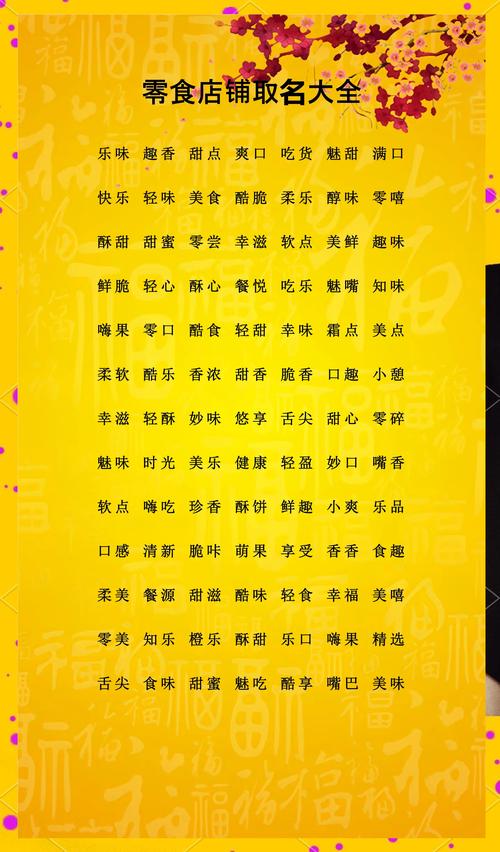 零食店铺取名大全
乐味 趣香 甜点 爽口 吃货 魅甜 满口
快乐 轻味 美食 酷脆 柔乐 醇味 零嘻
酥甜 甜蜜 零尝 幸滋 软点 美鲜 趣味
鲜脆 轻心 酥心 餐悦 吃乐 魅嘴 知味
嗨果 零口 酷食 轻甜 幸味 霜点 美点
柔软 酷乐 香浓 甜香 脆香 口趣 小憩
幸滋 轻酥 妙味 悠享 舌尖 甜心 零碎
魅味 时光 美乐 健康 轻盈 妙口 嘴香
软点 嗨吃 珍香 酥饼 鲜趣 小爽 乐品
口感 清新 脆咔 萌果 享受 香香 食趣
柔美 餐源 甜滋 酷味 轻食 幸福 美嘻
零美 知乐 橙乐 酥甜 乐口 嗨果 精选
舌尖 食味 甜蜜 魅吃 酷享 嘴巴 美味